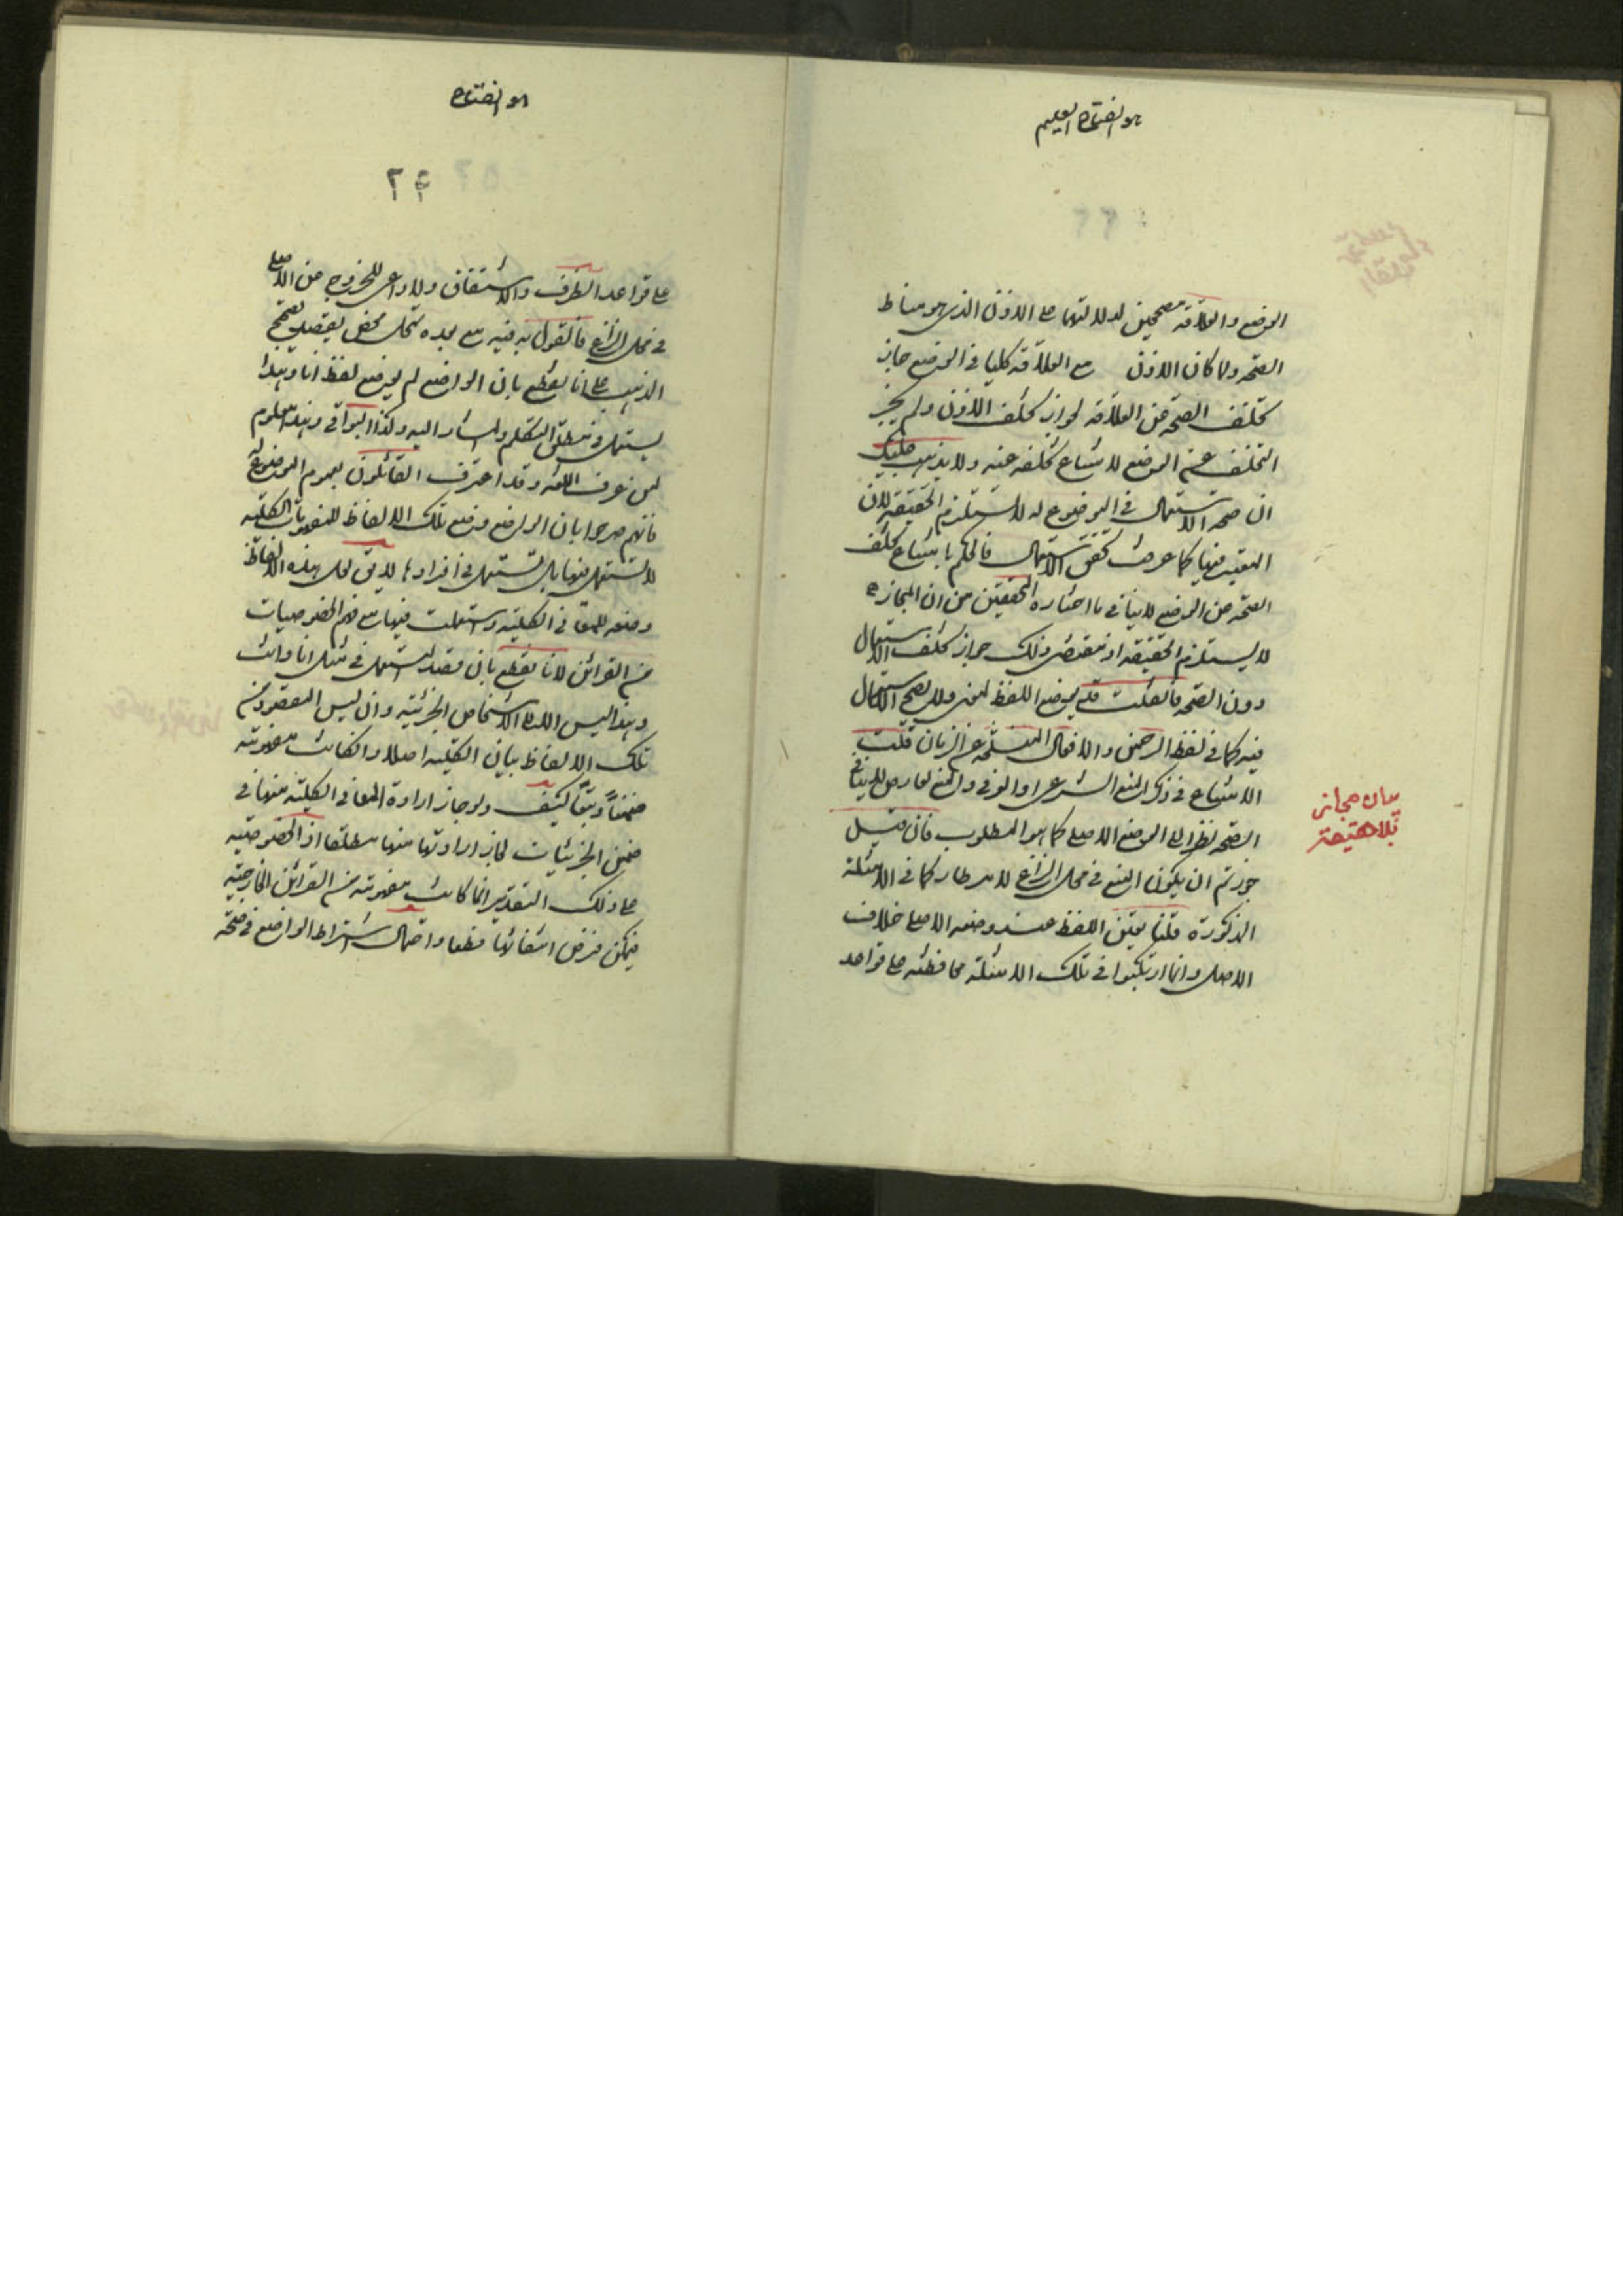 هو الفتاح العليم
الوضع والعلاقة مصححين لدلالتهما على الاذن الذي هو مناط
الصحة ولما كان الاذن مع العلاقة كليا في الوضع جاز
تخلف الصحة عن العلاقة لجواز تخلف الاذن ولم يجز
التخلف عن الوضع لامتناع تخلفه عنه ولا يذهب عليك
ان صحة الاستعمال في الموضوع له لا تستلزم الحقيقة لان
المعتبر فيها كما عرفت تحقق الاستعمال فالحكم بامتناع تخلف
الصحة عن الوضع لا ينافي ما اختاره المحققين من ان المجاز
لا يستلزم الحقيقة اذ مقتضى ذلك جواز تخلف الاستعمال
دون الصحة فان قلت قد يوضع اللفظ لمعنى ولا يصح الاستعمال
فيه كما في لفظ الرحمن والافعال المنسلخة عن الزمان قلت
الامتناع في ذلك المنع الشرعي او العرفي والمنع لعارض لا ينافي
الصحة نظرا الى الوضع الاصلي كما هو المطلوب فان قيل
جوزتم ان يكون المنع في محل النزاع لامر طار كما في الامثلة
المذكورة قلنا تعين اللفظ عند وضعه الاصلي خلاف
الاصل وانما ارتكبوا في تلك الامثلة محافظة على قواعد
بيان مجاز
بلا حقيقة
هو الفتاح
٢٤
على قواعد الصرف والاشتقاق ولا داعي للخروج عن الاصل
في محل النزاع فالقول به فيه مع بعده تمحل محض يقصد تصحيح
المذهب على انا نقطع بان الواضع لم يوضع لفظ انا وهذا
يستعمل في مطلق المتكلم والمشار اليه وكذا البواقي وهذا معلوم
لمن عرف اللغة وقد اعترف القائلون بعموم الموضوع له
فانهم صرحوا بان الواضع وضع تلك الالفاظ للمفهومات الكلية
لا لتستعمل فيها بل لتستعمل في افرادها لا يق لعل هذه الالفاظ
وضعه للمعاني الكلية واستعملت فيها مع فهم الخصوصيات
من القرائن لانا نقطع بان قصد المستعمل في مثل انا وانت
وهذا ليس الا الاشخاص الجزئية وان ليس المقصود من
تلك الالفاظ بيان الكلية اصلا وان كانت مفهومة
ضمنا وتبعا كيف ولو جاز ارادة المعاني الكلية منها في
ضمن الجزئيات لجاز ارادتها منها مطلقا اذ الخصوصية
على ذلك التقدير انما كانت مفهومة من القرائن الخارجية
فيمكن فرض انتفائها قطعا واحتمال اشتراط الواضع في صحة